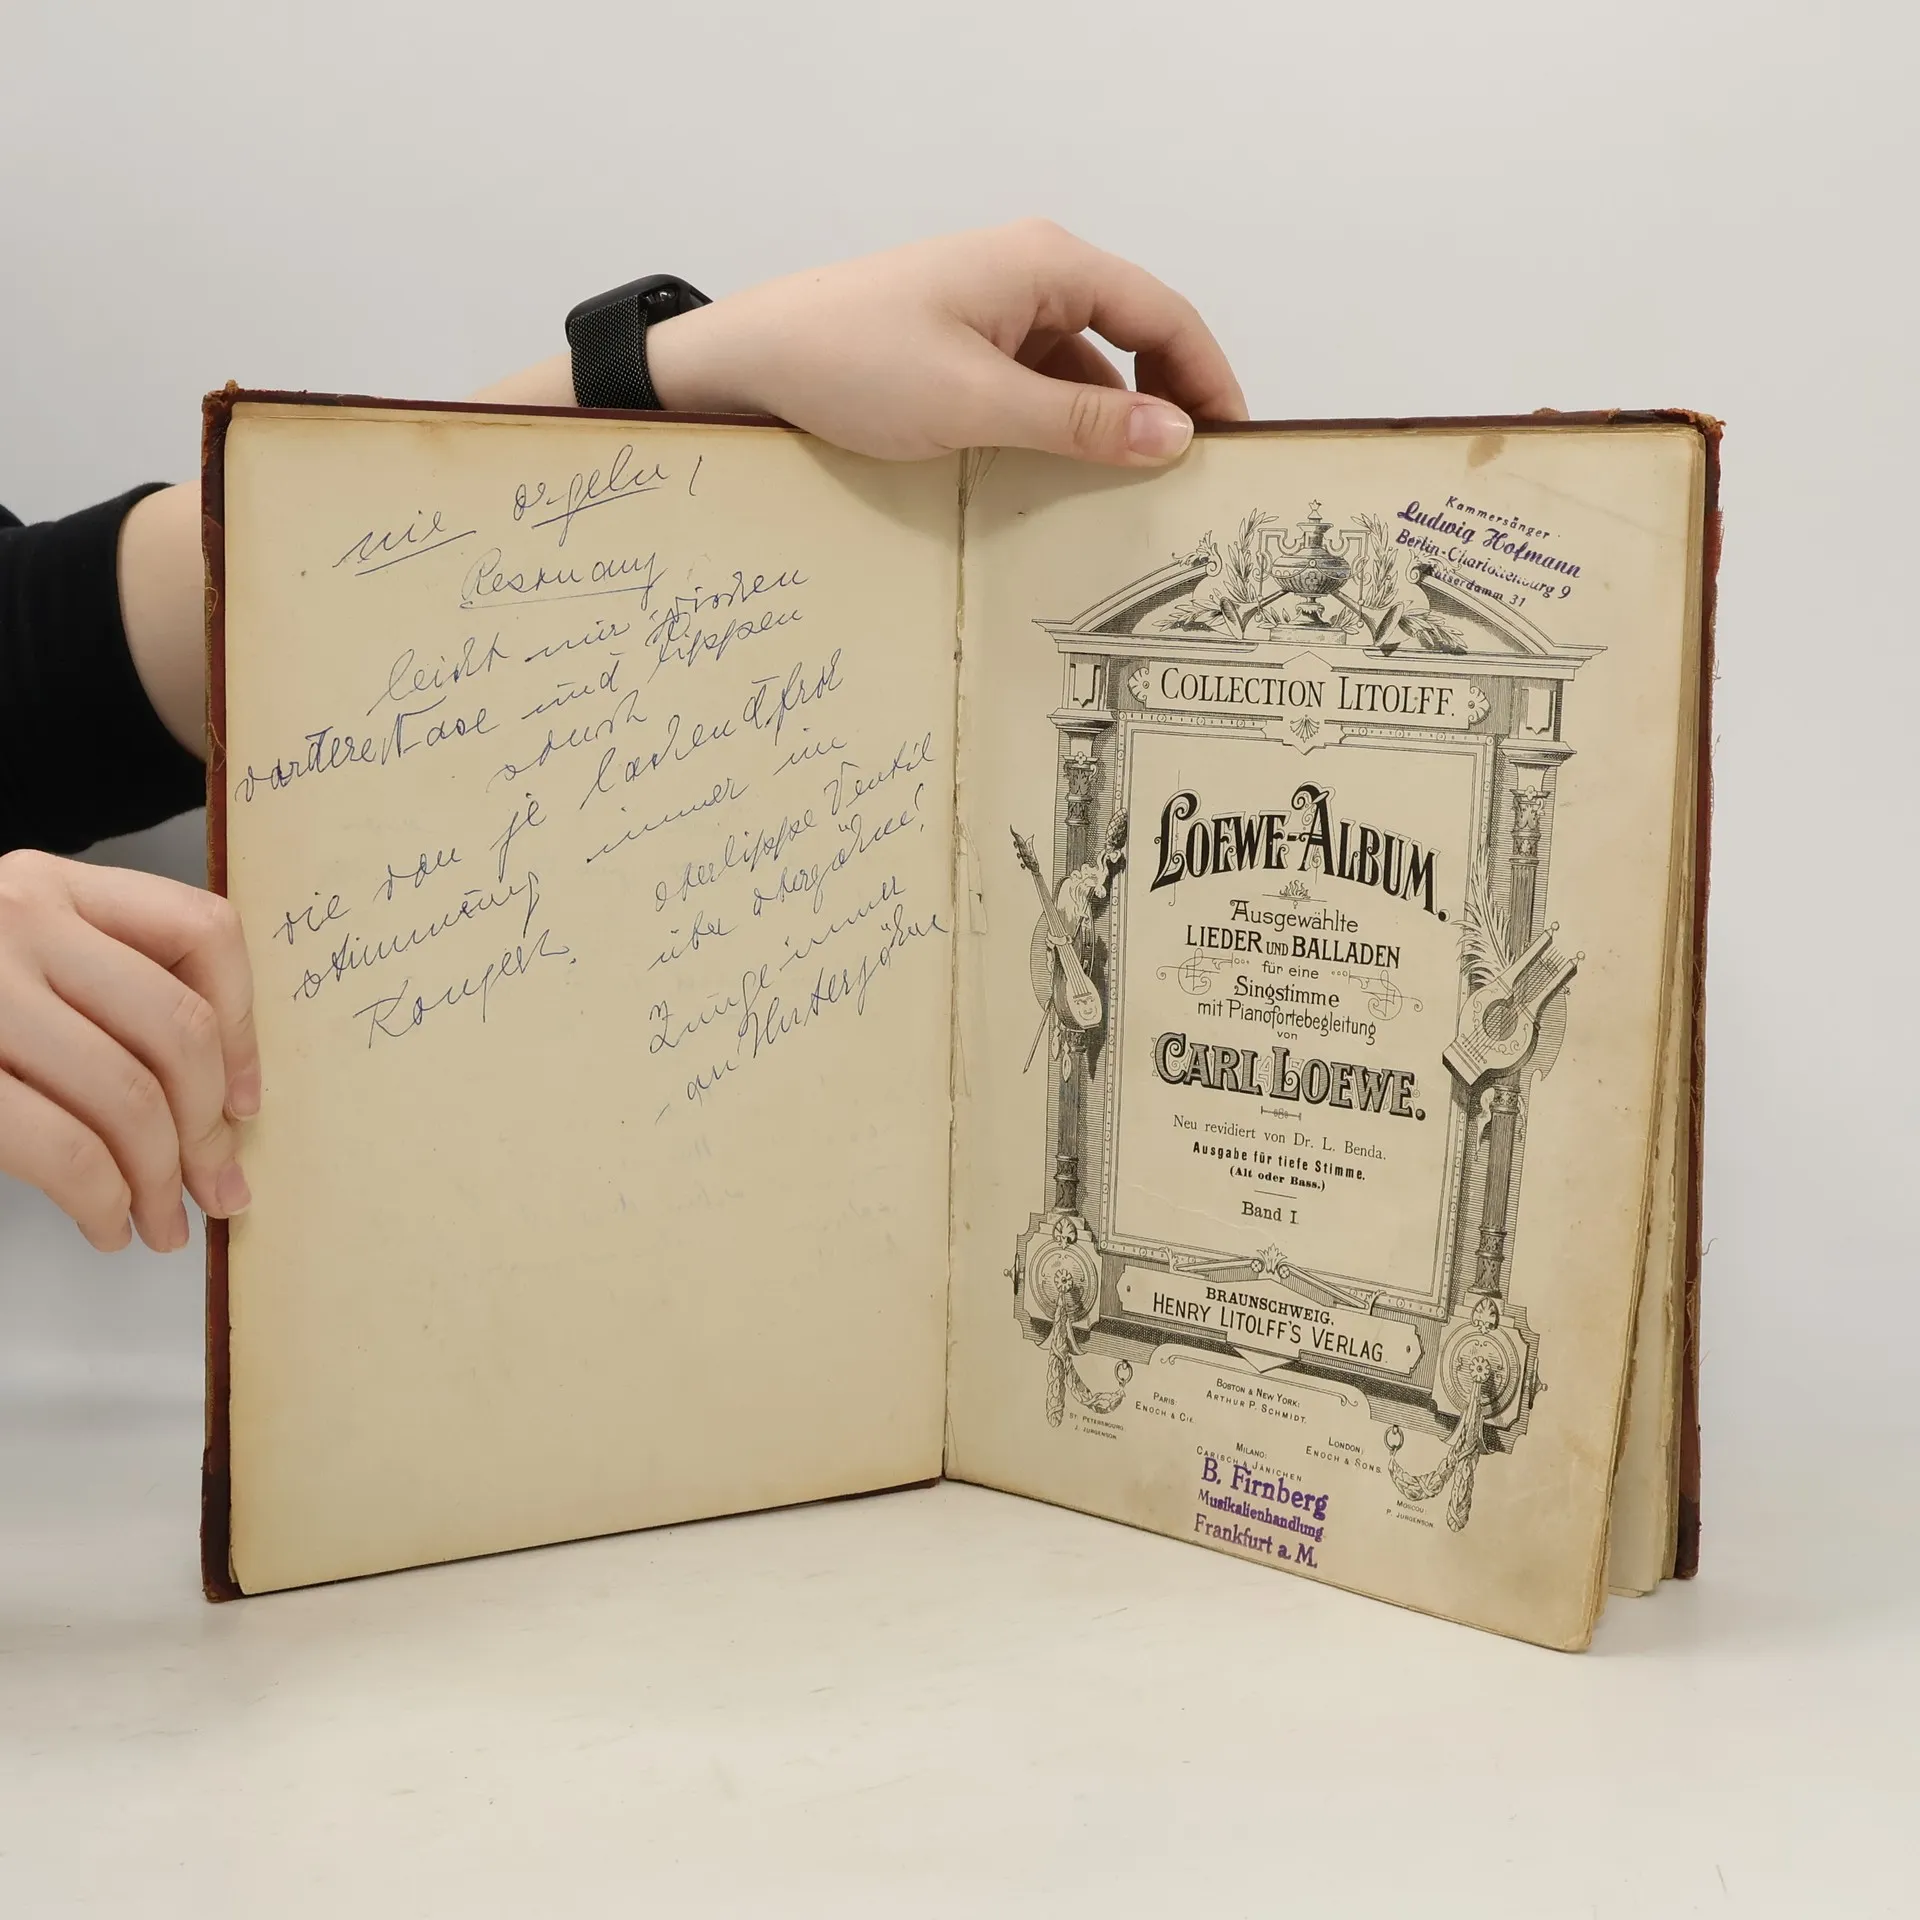 nie orgeln!
leicht nur zwischen
vordere Nase und Lippen
durch
je
immer in
Stimmung
Konzert.
Oberlippe Ventil
über Obergähne!
Zunge immer
an Untergähne
Kammersänger
Ludwig Hofmann
Berlin-Charlottenburg 9
Kaiserdamm 31
COLLECTION LITOLFF.
LOEWE-ALBUM.
Ausgewählte
LIEDER UND BALLADEN
für eine
Singstimme
mit Pianofortebegleitung
von
CARL LOEWE.
Neu revidiert von Dr. L. Benda.
Ausgabe für tiefe Stimme.
(Alt oder Bass.)
Band I
BRAUNSCHWEIG.
HENRY LITOLFF'S VERLAG.
BOSTON & NEW YORK:
ARTHUR P. SCHMIDT.
PARIS:
ENOCH & CIE.
ST. PETERSBOURG:
J. JURGENSON.
MILANO:
CARISCH & JÄNICHEN
LONDON:
ENOCH & SONS.
MOSCOU:
P. JURGENSON.
B. Firnberg
Musikalienhandlung
Frankfurt a. M.